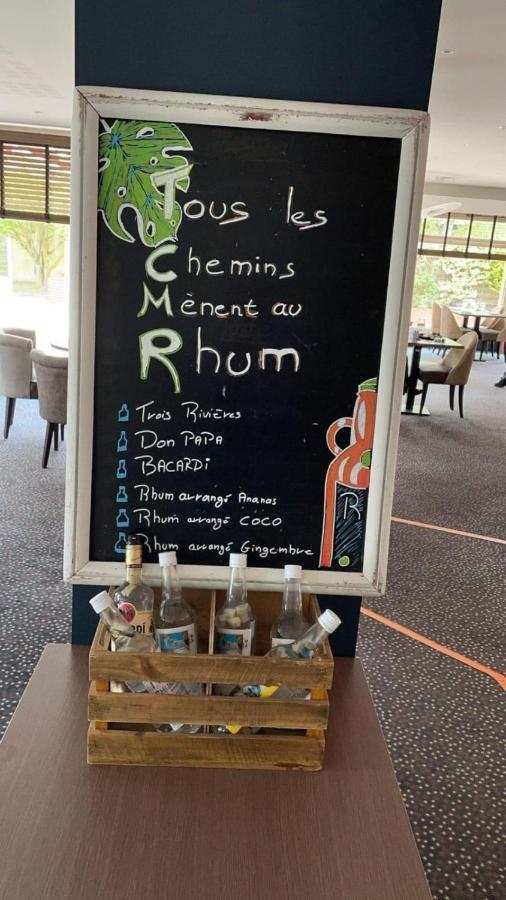 Tous les
Chemins
Mènent au
Rhum
Trois Rivières
Don PAPA
BACARDi
Rhum arrangé Ananas
Rhum arrangé COCO
Rhum arrangé Gingembre
R